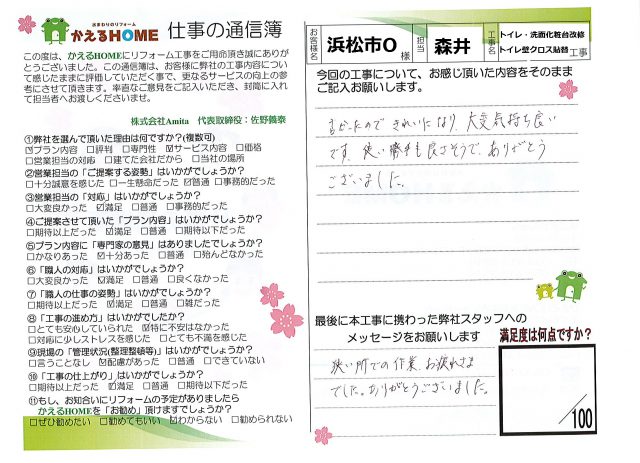 水まわりのリフォーム
かえるHOME 仕事の通信簿
この度は、かえるHOMEにリフォーム工事をご用命頂き誠にありが
とうございました。この通信簿は、お客様に弊社の工事内容につい
て感じたままに評価していただく事で、更なるサービスの向上の参
考にさせて頂きます。率直なご意見をご記入いただき、封筒に入れ
て担当者へお渡しくださいませ。
株式会社Amita 代表取締役：佐野義泰
①弊社を選んで頂いた理由は何ですか?(複数可)
☑プラン内容 □評判 □専門性 ☑サービス内容 □価格
□営業担当の対応 □建てた会社だから □当社の場所
②営業担当の「ご提案する姿勢」はいかがでしょうか？
□十分誠意を感じた □一生懸命だった ☑普通 □事務的だった
③営業担当の「対応」はいかがでしょうか？
□大変良かった ☑満足 □普通 □事務的だった
④ご提案させて頂いた「プラン内容」はいかがでしょうか？
□期待以上だった ☑満足 □普通 □期待以下だった
⑤プラン内容に「専門家の意見」はありましたでしょうか？
□かなりあった ☑十分あった □普通 □殆んどなかった
⑥「職人の対応」はいかがでしょうか？
□大変良かった ☑満足 □普通 □良くなかった
⑦「職人の仕事の姿勢」はいかがでしょうか？
□期待以上だった ☑満足 □普通 □雑だった
⑧「工事の進め方」はいかがでしたか？
□とても安心していられた ☑特に不安はなかった
□対応に少しストレスを感じた □とても不満を感じた
⑨現場の「管理状況(整理整頓等)」はいかがでしょうか？
□言うことなし ☑配慮があった □普通 □できていない
⑩「工事の仕上がり」はいかがでしょうか？
□期待以上だった ☑満足 □普通 □期待以下だった
⑪もし、お知合いにリフォームの予定がありましたら
かえるHOMEを「お勧め」頂けますでしょうか？
□ぜひ勧めたい □勧めてもいい ☑わからない □勧められない
お客様名 浜松市O 様 担当 森井 工事名 トイレ・洗面化粧台改修
トイレ壁クロス貼替 工事
今回の工事について、お感じ頂いた内容をそのまま
ご記入お願いします。
きれいになり、大変気持ち良い
です。使い勝手も良さそうで、ありがとう
ございました。
最後に本工事に携わった弊社スタッフへの
メッセージをお願いします
狭い所での作業、お疲れさま
でした。ありがとうございました。
満足度は何点ですか？
/100